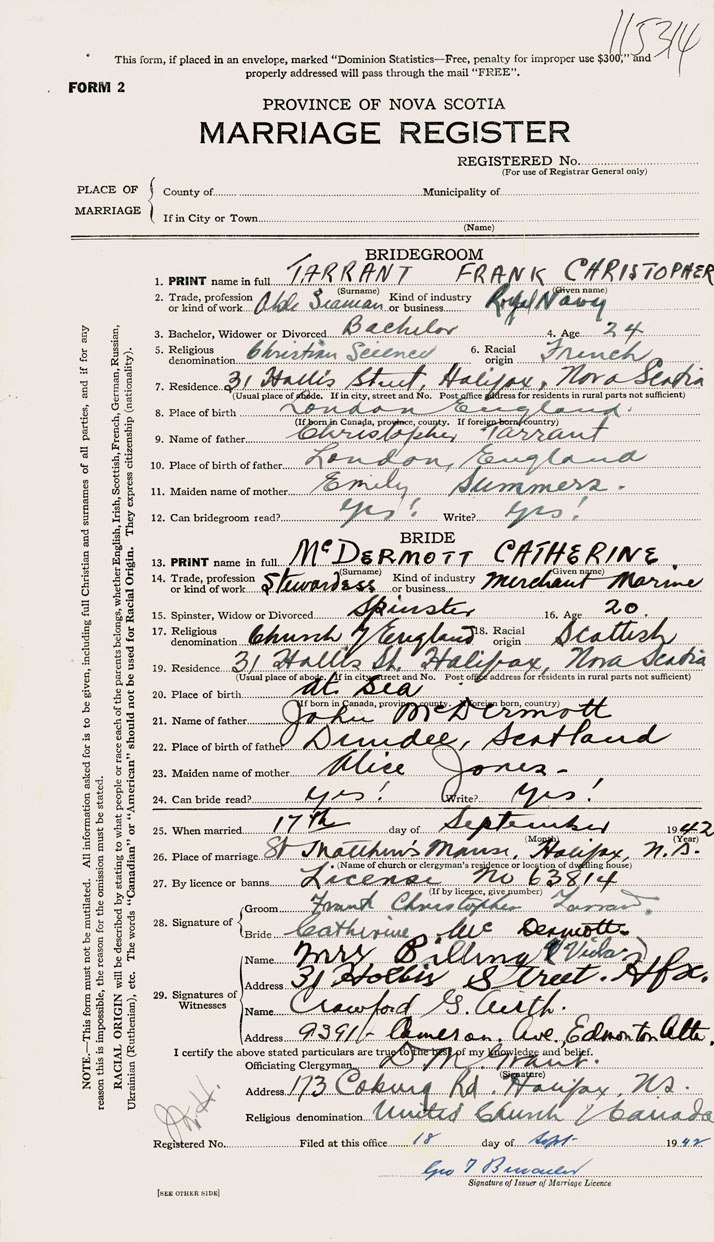 115314
This form, if placed in an envelope, marked "Dominion Statistics—Free, penalty for improper use $300," and
properly addressed will pass through the mail "FREE".
FORM 2
PROVINCE OF NOVA SCOTIA
MARRIAGE REGISTER
REGISTERED No.
(For use of Registrar General only)
PLACE OF MARRIAGE
County of Municipality of
If in City or Town
(Name)
BRIDEGROOM
1. PRINT name in full TARRANT FRANK CHRISTOPHER
(Surname) (Given name)
2. Trade, profession or kind of work Able Seaman Kind of industry or business Royal Navy
3. Bachelor, Widower or Divorced Bachelor 4. Age 24
5. Religious denomination Christian Science 6. Racial origin French
7. Residence 31 Hollis Street, Halifax, Nova Scotia
(Usual place of abode. If in city, street and No. Post office address for residents in rural parts not sufficient)
8. Place of birth London England.
(If born in Canada, province, county. If foreign born, country)
9. Name of father Christopher Tarrant
10. Place of birth of father London, England
11. Maiden name of mother Emily Summers.
12. Can bridegroom read? yes! Write? yes!
BRIDE
13. PRINT name in full McDERMOTT CATHERINE
(Surname) (Given name)
14. Trade, profession or kind of work Stewardess Kind of industry or business Merchant Marine
15. Spinster, Widow or Divorced Spinster 16. Age 20.
17. Religious denomination Church of England 18. Racial origin Scottish
19. Residence 31 Hollis St. Halifax, Nova Scotia
(Usual place of abode. If in city, street and No. Post office address for residents in rural parts not sufficient)
20. Place of birth at Sea
(If born in Canada, province, county. If foreign born, country)
21. Name of father John McDermott
22. Place of birth of father Dundee, Scotland
23. Maiden name of mother Alice Jones-
24. Can bride read? yes! Write? yes!
25. When married 17th day of September 1942
(Month) (Year)
26. Place of marriage St Matthew's Manse, Halifax, N.S.
(Name of church or clergyman's residence or location of dwelling house)
27. By licence or banns License No 63814
(If by licence, give number)
28. Signature of
Groom Frank Christopher Tarrant.
Bride Catherine Mc Dermott
29. Signatures of Witnesses
Name Mrs Billing (Vida)
Address 31 Hollis Street. Hfx.
Name Crawford G. Airth.
Address 9391- Cameron. Ave, Edmonton Alta.
I certify the above stated particulars are true to the best of my knowledge and belief.
Officiating Clergyman D.M. Grant.
(Signature)
Address 173 Coburg Rd. Halifax, N.S.
Religious denomination United Church of Canada
Registered No. Filed at this office 18 day of Sept 1942
Geo T
Signature of Issuer of Marriage Licence
[SEE OTHER SIDE]
NOTE.—This form must not be mutilated. All information asked for is to be given, including full Christian and surnames of all parties, and if for any
reason this is impossible, the reason for the omission must be stated.
RACIAL ORIGIN will be described by stating to what people or race each of the parents belongs, whether English, Irish, Scottish, French, German, Russian,
Ukrainian (Ruthenian), etc. The words "Canadian" or "American" should not be used for Racial Origin. They express citizenship (nationality).